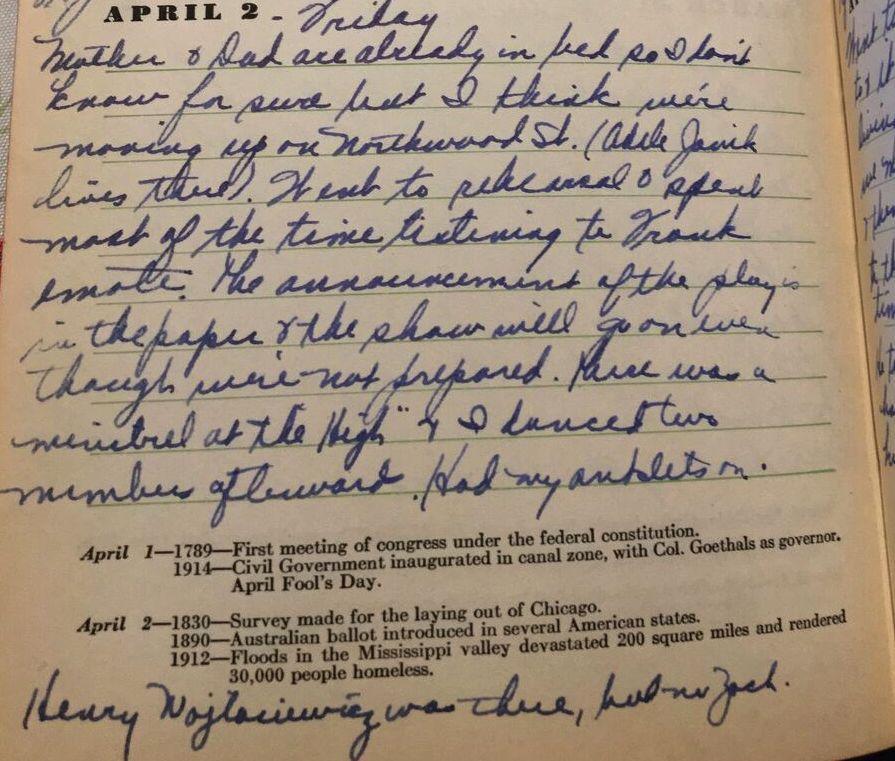 APRIL 2 - Friday
Mother & Dad are already in bed so I don't
know for sure but I think we're
moving up on Northwood St. (Adele Janik
lives there). Went to rehearsal & spent
most of the time listening to Frank
emote. The announcement of the play is
in the paper & the show will go on even
though we're not prepared. There was a
minstrel at the "High" & I danced two
numbers afterward. Had my anklets on.
April 1—1789—First meeting of congress under the federal constitution.
1914—Civil Government inaugurated in canal zone, with Col. Goethals as governor.
April Fool's Day.
April 2—1830—Survey made for the laying out of Chicago.
1890—Australian ballot introduced in several American states.
1912—Floods in the Mississippi valley devastated 200 square miles and rendered
30,000 people homeless.
Henry was there, but no Zach.